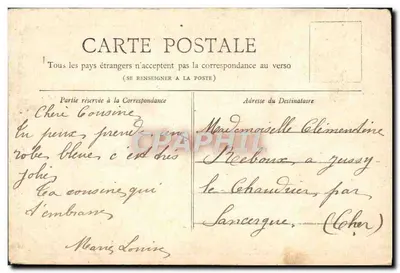 CARTE POSTALE
Tous les pays étrangers n'acceptent pas la correspondance au verso
(SE RENSEIGNER A LA POSTE)
Partie réservée à la Correspondance
Adresse du Destinataire
Chère Cousine
Tu peux prend mon
robe bleue c'est très
jolie
Ta cousine qui
t'embrasse
Marie Louise
Mademoiselle Clémentine
Reboux a Jussy
le Chaudrier par
Sancergue (Cher)
CPAPHIL